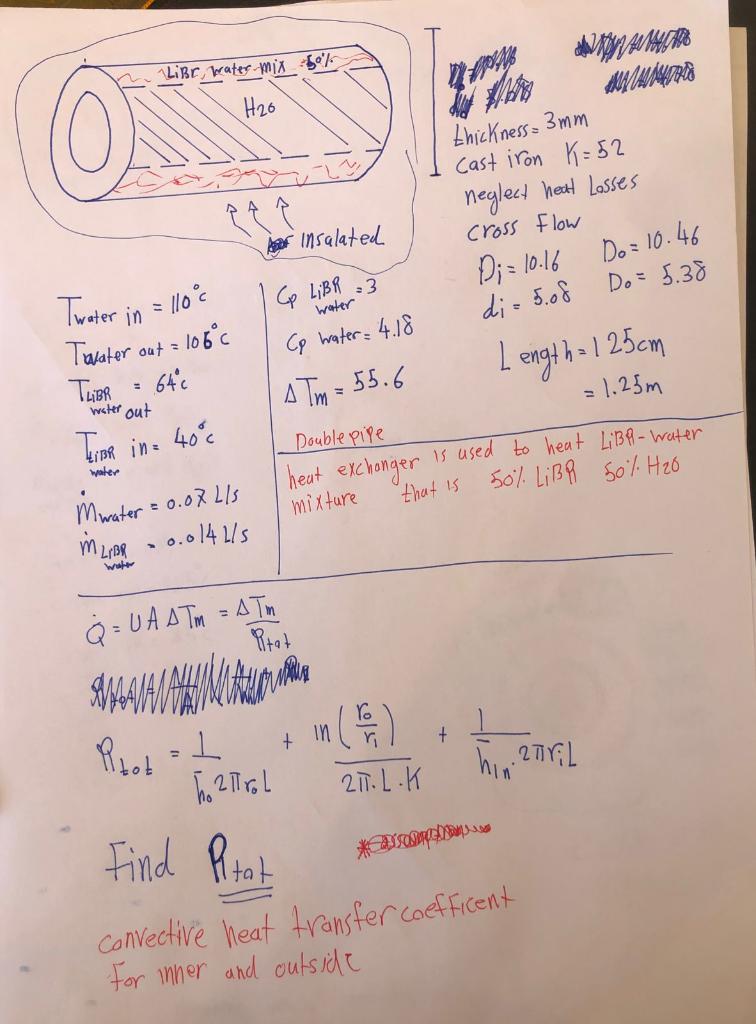 LiBr water mix 50%
H2O
Insalated
thickness = 3mm
cast iron K = 52
neglect heat Losses
cross Flow
Di = 10.16 Do = 10.46
di = 5.08 Do = 5.38
Length = 125cm
= 1.25m
Twater in = 110°c
Twater out = 106°c
TLiBR water out = 64°c
TLiBR water in = 40°c
ṁwater = 0.07 L/s
ṁLiBR water = 0.014 L/s
Cp LiBR water = 3
Cp water = 4.18
ΔTm = 55.6
Double pipe
heat exchanger is used to heat LiBR-water
mixture that is 50% LiBR 50% H2O
Q̇ = UAΔTm = ΔTm / Rtot
Rtot = 1 / h̄o 2πroL + ln(ro/ri) / 2π.L.K + 1 / h̄in.2πriL
Find Rtot
convective heat transfer coefficent
for inner and outside